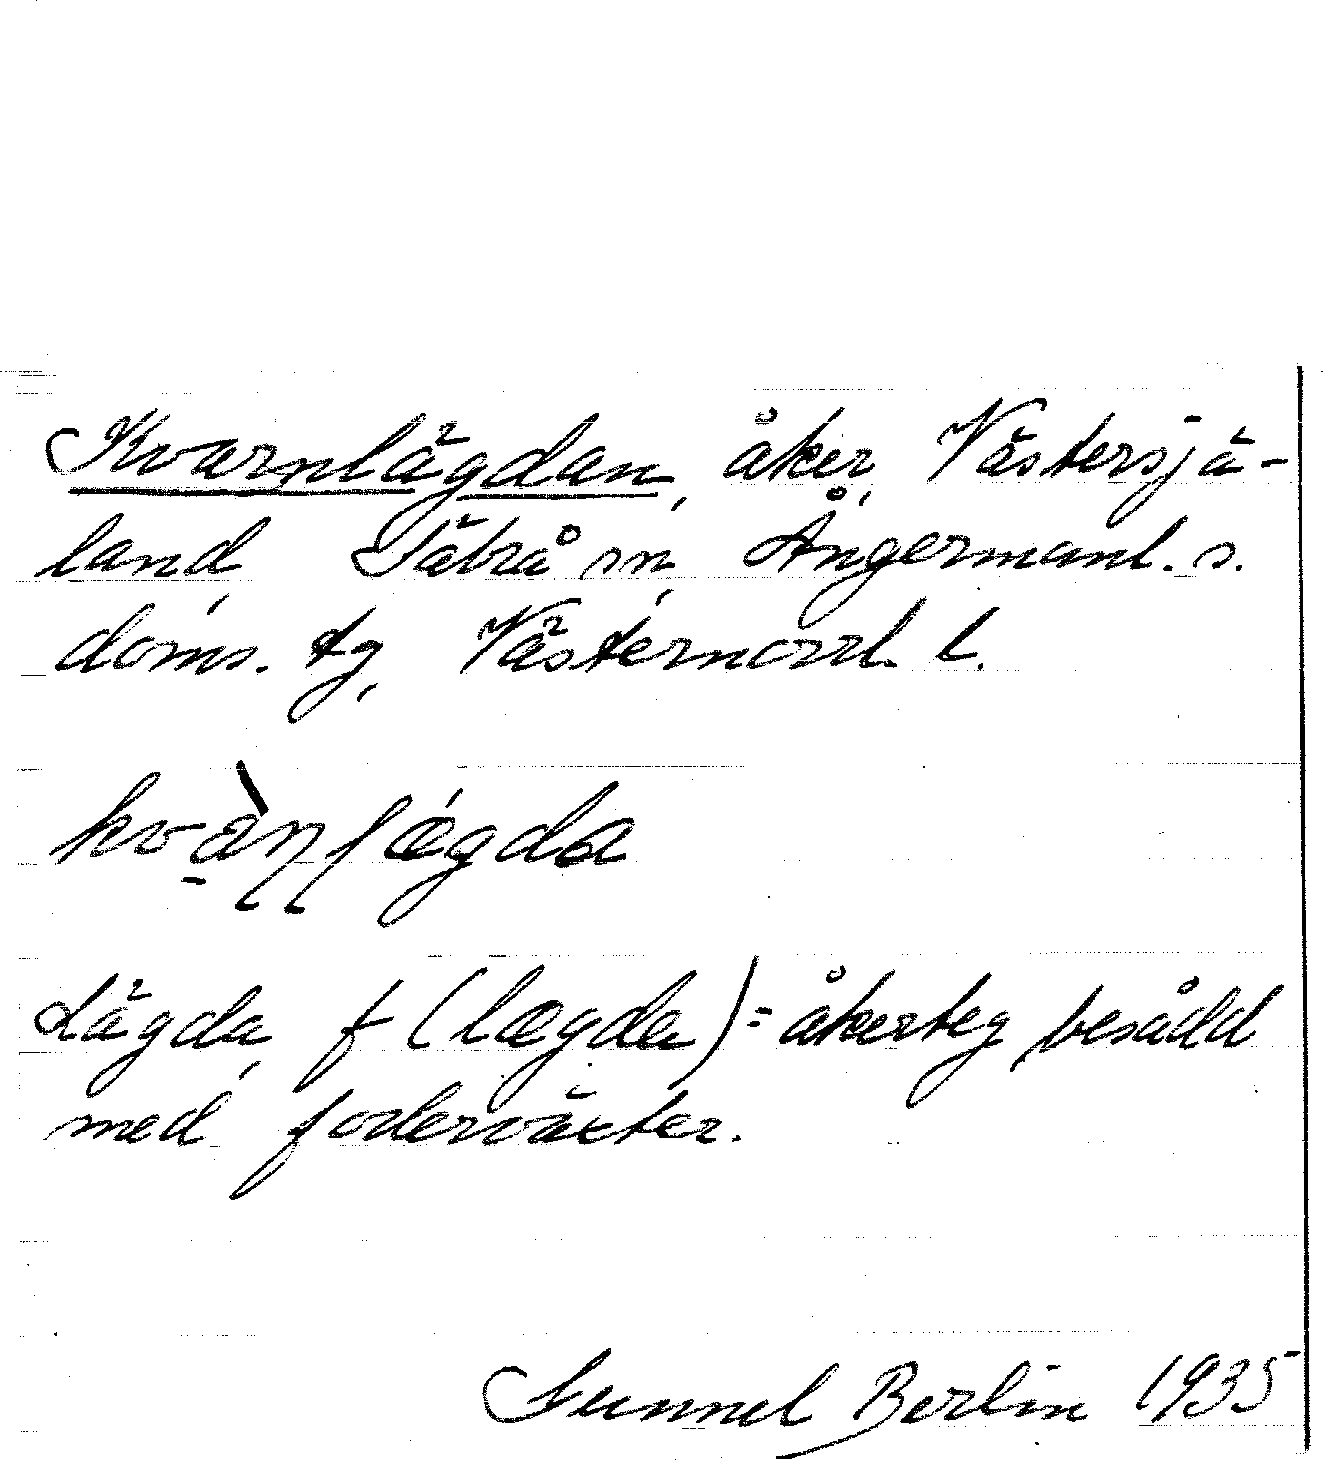 Kvarnlägdan, åker, Västersjä-
land, Säbrå sn, Ångermanl. s.
doms. tg, Västernorrl. l.
kvà̠ṇḷǽgda
Lägda, f (lægda) = åkerteg, besådd
med foderväxter.
Gunnel Berlin 1935